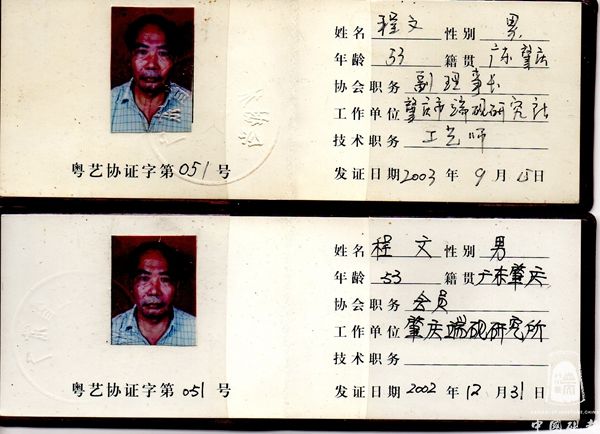 姓名 程文 性别 男
年龄 53 籍贯 广东肇庆
协会职务 副理事长
工作单位 肇庆市端砚研究社
技术职务 工艺师
粤艺协证字第051号 发证日期 2003 年 9 月 15 日
姓名 程文 性别 男
年龄 53 籍贯 广东肇庆
协会职务 会员
工作单位 肇庆端砚研究所
技术职务
粤艺协证字第051号 发证日期 2002 年 12 月 31 日